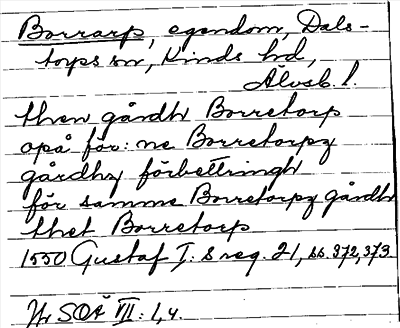 Borrarp, egendom, Dals-
torps sn, Kinds hd,
Älvsb. l.
then gårdh Borretorp
opå för:ne Borretorpz
gårdhz förbettringh
för samme Borretorpz gårdh
thet Borretorp
1550 Gustaf I:s reg. 21, ss. 372, 373.
Jfr SOÄ VII: 1, 4.